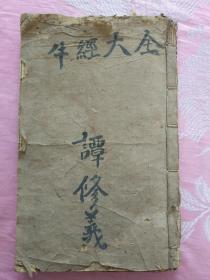 牛經大全
譚修義